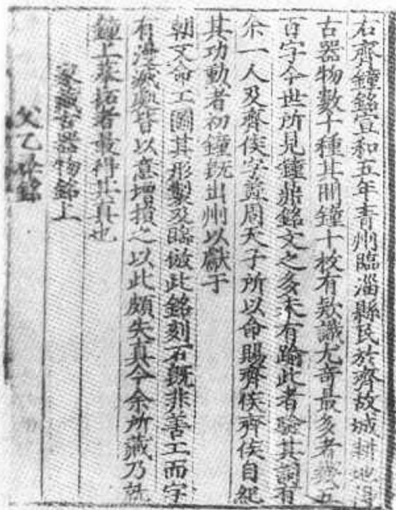 右齊鐘銘宣和五年青州臨淄縣民於齊故城耕地得
古器物數十種其間鐘十枚有欵識尤奇最多者幾五
百字今世所見鐘鼎銘文之多未有踰此者驗其詞有
余一人及齊侯字蓋周天子所以命賜齊侯齊侯自紀
其功勳者初鐘既出州以獻于
朝又命工圖其形製及臨倣此銘刻石既非善工而字
有漫滅處皆以意增損之以此頗失真今余所藏乃就
鐘上摹拓者最得其真也
家藏古器物銘上
父乙彝銘